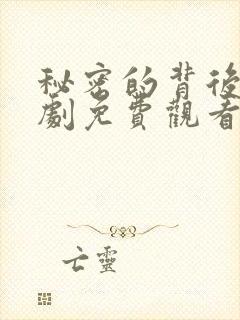 秘密的背後
劇免費觀看
亡靈